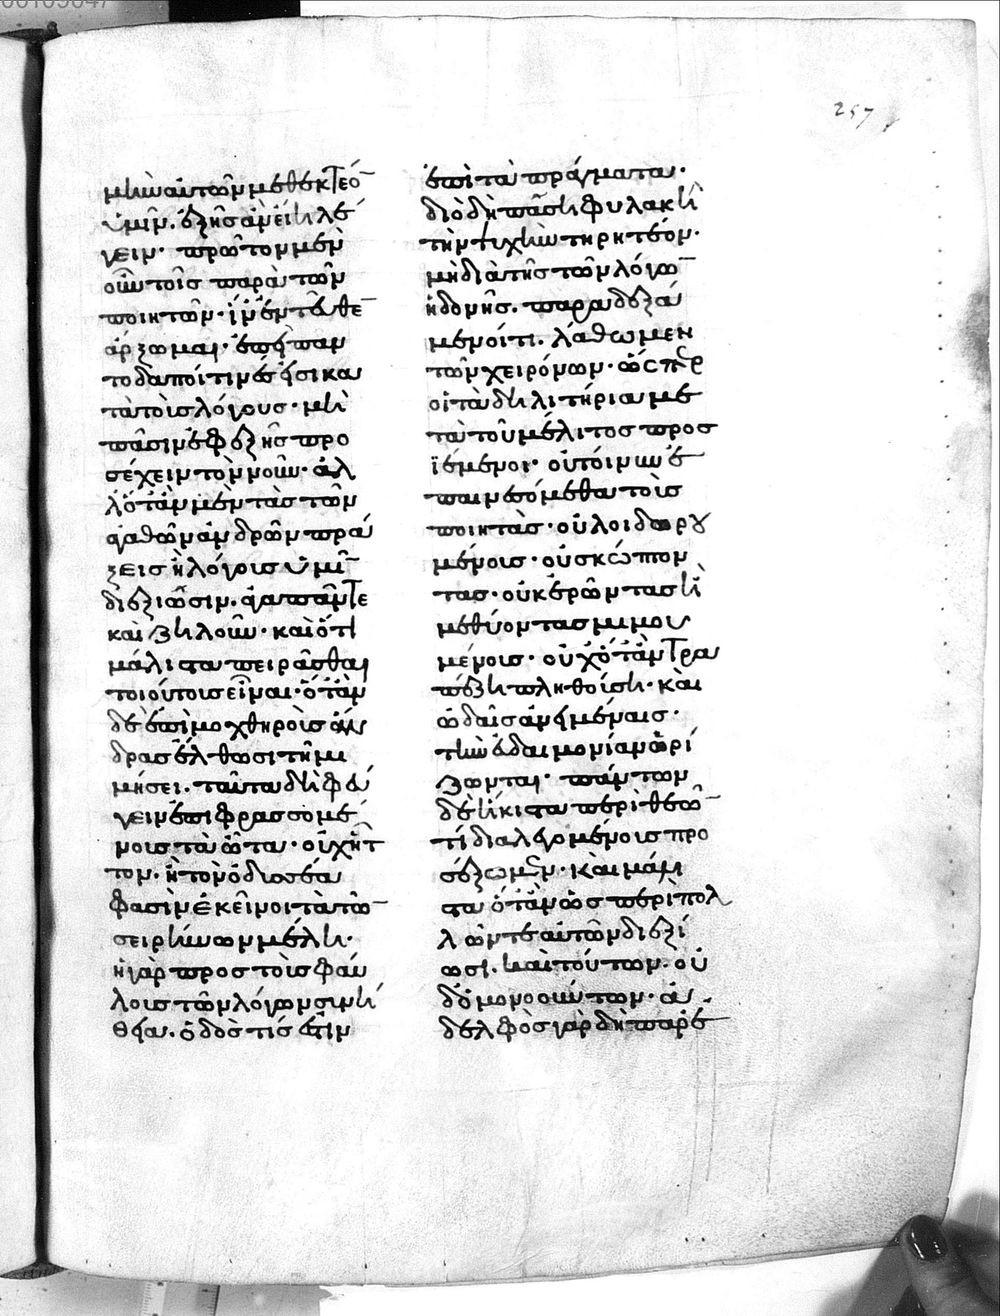 257
μὴν αὐτῶν μεθεκτέον
ὑμῖν. ἑξῆς ἂν εἴη λέ
γειν· πρῶτον μὲν
οὖν τοῖς παρὰ τῶν
ποιητῶν· ἵν' ἐντεῦθεν
ἄρξωμαι· ἐπεὶ παν
τοδαποί τινές εἰσι κα
τὰ τοὺς λόγους· μὴ
πᾶσιν ἐφεξῆς προ
σέχειν τὸν νοῦν· ἀλ
λ' ὅταν μὲν τὰς τῶν
ἀγαθῶν ἀνδρῶν πρά
ξεις ἢ λόγους ὑμῖν
διεξίωσιν. ἀγαπᾶν τε
καὶ ζηλοῦν· καὶ ὅτι
μάλιστα πειρᾶσθαι
τοιούτοις εἶναι· ὅταν
δὲ ἐπὶ μοχθηροὺς ἄν
δρας ἔλθωσι τῇ μι
μήσει. ταῦτα δεῖ φεύ
γειν ἐπιφρασσομέ
νοις τὰ ὦτα· οὐχ ἧτ
τον. ἢ τὸν ὀδυσσέα
φασὶν ἐκεῖνοι τὰ τῶν
σειρήνων μέλη·
ἡ γὰρ πρὸς τοὺς φαύ
λους τῶν λόγων συνή
θεια. ὁδός τίς ἐστιν
ἐπὶ τὰ πράγματα·
διὸ δὴ πάσῃ φυλακῇ
τὴν ψυχὴν τηρητέον·
μὴ διὰ τῆς τῶν λόγων
ἡδονῆς. παραδεξά
μενοί τι. λάθωμεν
τῶν χειρόνων· ὥσπερ
οἱ τὰ δηλητήρια με
τὰ τοῦ μέλιτος προσ
ϊέμενοι· οὐ τοίνυν ἐ
παινεσόμεθα τοὺς
ποιητὰς· οὐ λοιδορου
μένους· οὐ σκώπτον
τας· οὐκ ἐρῶντας ἢ
μεθύοντας μιμου
μένους· οὐχ ὅταν τρα
πέζῃ πληθούσῃ· καὶ
ᾠδαῖς ἀνειμέναις·
τὴν εὐδαιμονίαν ὁρί
ζωνται· πάντων
δὲ ἥκιστα περὶ θεῶν
τί διαλεγομένοις προ
σέξωμεν· καὶ μάλι
στα ὅταν ὡς περὶ πολ
λῶν τε αὐτῶν διεξί
ωσι. καὶ τούτων. οὐ
δὲ μονοούντων· ἀ
δελφὸς γὰρ δὴ παρ' ἐ